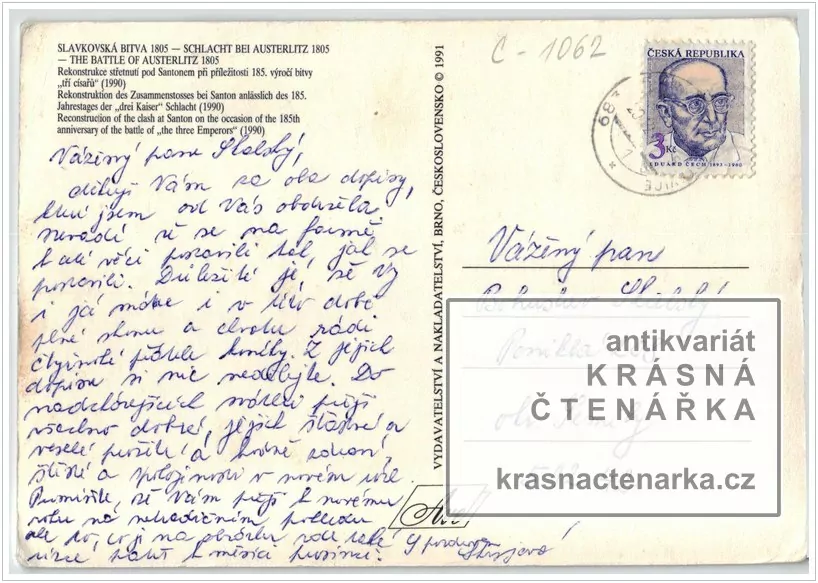 SLAVKOVSKÁ BITVA 1805 — SCHLACHT BEI AUSTERLITZ 1805
— THE BATTLE OF AUSTERLITZ 1805
Rekonstrukce střetnutí pod Santonem při příležitosti 185. výročí bitvy
„tří císařů" (1990)
Rekonstruktion des Zusammenstosses bei Santon anlässlich des 185.
Jahrestages der „drei Kaiser" Schlacht (1990)
Reconstruction of the clash at Santon on the occasion of the 185th
anniversary of the battle of „the three Emperors" (1990)
Vážený pane Skalský,
děkuji Vám za oba dopisy,
které jsem od Vás obdržela.
Nevadí
věci postavili tak, jak se
postavili. Důležité je, že Vy
i já máme i v této době
plné shonu a chvatu rádi
čtyřnohé přátele
dopisu si nic nedělejte. Do
nadcházejících svátků přeji
všechno dobré, jejich šťastné a
veselé prožití a hodně zdraví,
štěstí a spokojenosti v novém roce.
Promiňte, že Vám přeji k novému
roku na netradičním pohledu
ale to, co je na obrázku
k měsíci prosinci. S pozdravem
VYDAVATELSTVÍ A NAKLADATELSTVÍ, BRNO, ČESKOSLOVENSKO © 1991
C - 1062
ČESKÁ REPUBLIKA
3 Kčs
EDUARD ČECH 1893-1960
68
Vážený pan
Bohuslav Skalský
Poniklá
antikvariát
KRÁSNÁ
ČTENÁŘKA
krasnactenarka.cz